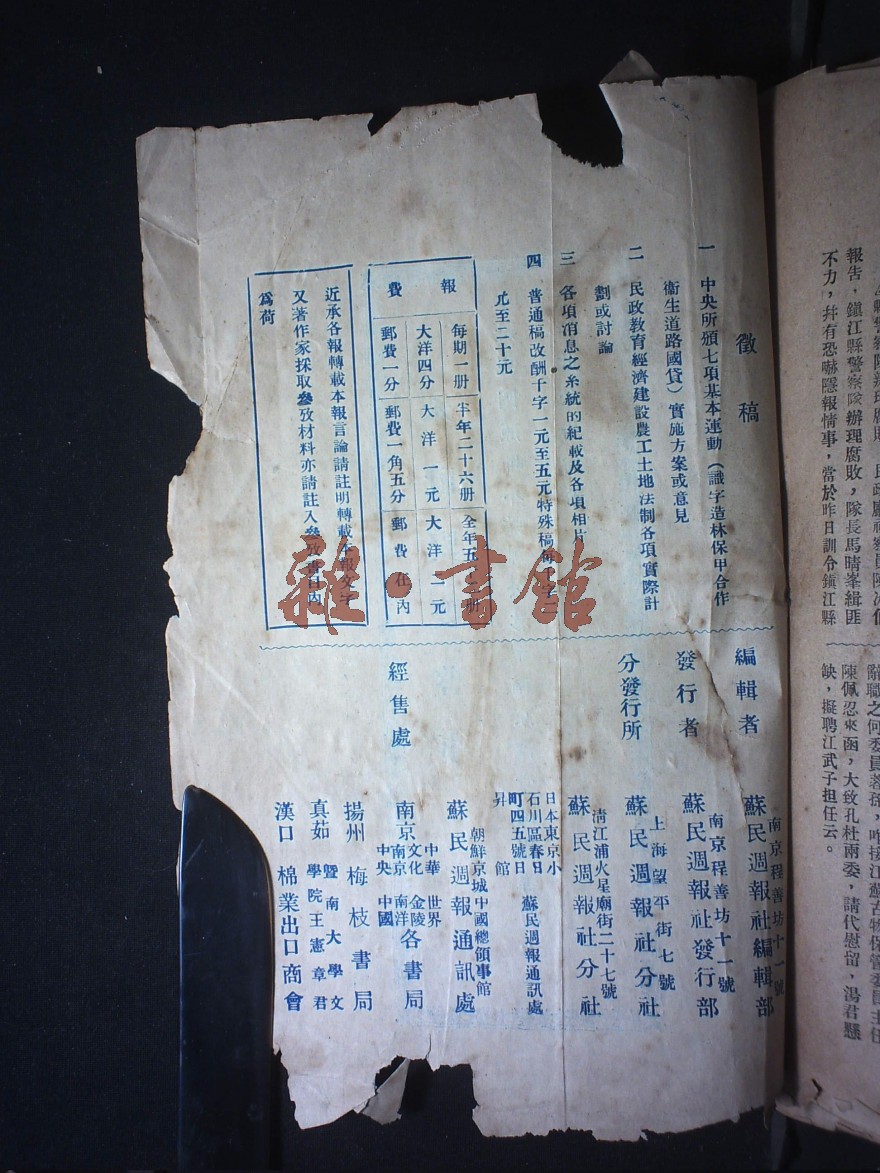 徵稿
一 中央所頒七項基本運動（識字造林保甲合作
衞生道路國貨）實施方案或意見
二 民政教育經濟建設農工土地法制各項實際計
劃或討論
三 各項消息之系統的紀載及各項相片
四 普通稿改酬千字一元至五元特殊稿每千字二
元至二十元
報費
每期一册 半年二十六册 全年五 册
大洋四分 大洋一元 大洋二元
郵費一分 郵費一角五分 郵費在內
近承各報轉載本報言論請註明轉載本報文字
又著作家採取叄攷材料亦請註入叄攷書目內
爲荷
雜·書館
編輯者
南京程善坊十一號
蘇民週報社編輯部
發行者
南京程善坊十一號
蘇民週報社發行部
分發行所
上海望平街七號
蘇民週報社分社
淸江浦火星廟街二十七號
蘇民週報社分社
日本東京小
石川區春日
町四五號日
昇館
蘇民週報通訊處
朝鮮京城中國總領事館
蘇民週報通訊處
經售處
南京
中華 世界
文化 金陵
南京 南洋
中央 中國
各書局
揚州梅枝書局
眞茹
曁南大學文
學院王憲章君
漢口 棉業出口商會
報告，鎭江縣警察隊辦理腐敗，隊長馬晴峯緝匪
不力，幷有恐嚇隱報情事，當於昨日訓令鎭江縣
陳佩忍來函，大致孔杜兩委，請代慰留，湯君懸
缺，擬聘江武子担任云。